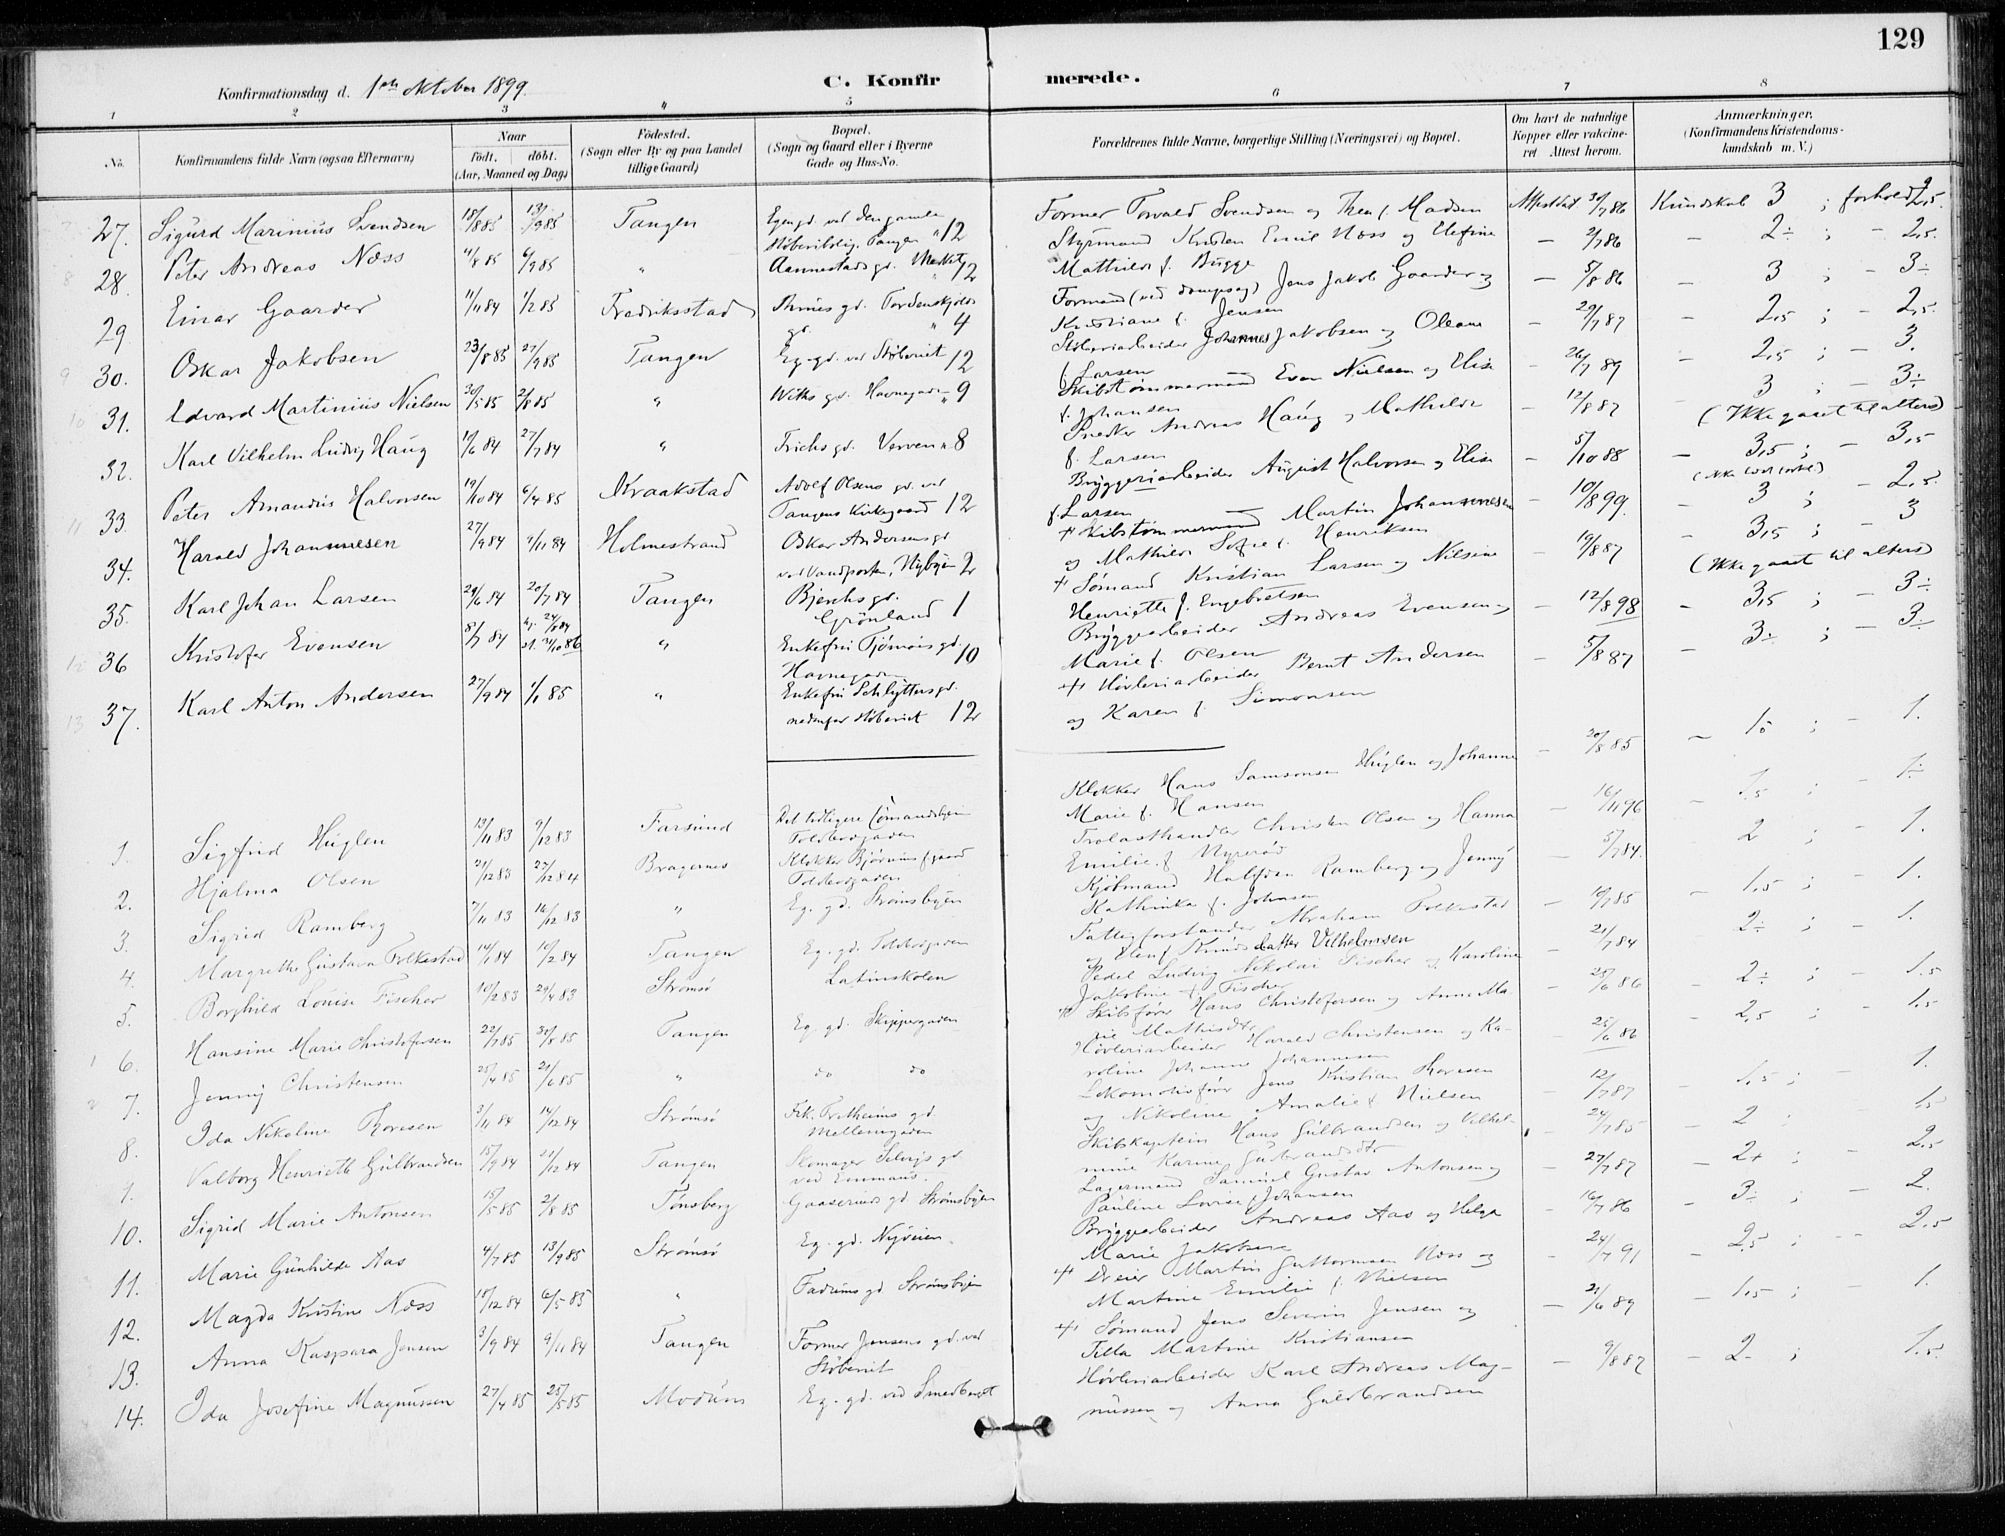 129
Konfirmationsdag d. 1ste Oktober 1899.
C. Konfirmerede.
1 2 3 4 5 6 7 8
No. Konfirmandens fulde Navn (ogsaa Efternavn) Naar født. døbt. (Aar, Maaned og Dag) Fødested. (Sogn eller By og paa Landet tillige Gaard) Bopæl. (Sogn og Gaard eller i Byerne Gade og Hus-No. Forældrenes fulde Navne, borgerlige Stilling (Næringsvei) og Bopæl. Om havt de naturlige Kopper eller vakcineret Attest herom. Anmærkninger. (Konfirmandens Kristendomskundskab m. V.)
27. Sigurd Marinius Svendsen 18/8 85 13/9 85 Tangen Egen gd. ved den gamle Støberibolig. Tangen 12 Former Torvald Svendsen og Thea f. Madsen Attesteret 30/7 86 Kundskab 3 ; forhold 2,5.
28. Peter Andreas Næss 4/8 85 6/9 85 " Aannestads gd. 12 Styrmand Kristen Emil Næss og Elefine Mathilde f. Bugge – 2/7 86 – 2÷ ; – 2,5.
29 Einar Gaarder 11/11 84 1/2 85 Fredriksstad Thrues gd. Tordenskjolds gd. " 4 Formand (ved dampsag) Jens Jakob Gaarder og Kristiane f. Jensen – 5/8 86 – 3 ; – 3÷
30. Oskar Jakobsen 23/8 85 27/9 85 Tangen Eg. gd. ved Støberiet 12 Støberiarbeider Johannes Jakobsen og Oleane f. Larsen – 29/7 87 – 2,5 ; – 2,5.
31. Edvard Martinius Nielsen 30/5 85 2/8 85 " Wiks gd. Havnegaden 9 Skibstømmermand Even Nielsen og Elise f. Johansen – 26/7 89 – 2,5 ; – 3.
32. Karl Vilhelm Ludvig Haug 17/6 84 27/7 84 " Frichs gd. Verven " 8 Snedker Andreas Haug og Mathilde f. Larsen – 12/8 87 – 3 ; – 3÷ (Ikke gaaet til alters)
33. Peter Amandus Halvorsen 19/10 84 6/4 85 Kraakstad Adolf Olsens gd. ved Tangens Kirkegaard 12 Bryggeriarbeider August Halvorsen og Elise f. Larsen – 5/10 88 – 3,5 ; – 3,5
34. Harald Johannesen 27/9 84 9/11 84 Holmestrand Oskar Andersens gd ved Vandporten, Nybyen 2 + Skibstømmermand Martin Johannesen og Mathilde Sofie f. Henriksen – 10/8 99. – 3 ; – 2,5.
35. Karl Johan Larsen 29/6 84 20/7 84 Tangen Bjerchs gd. Grønland 1 + Sømand Kristian Larsen og Nilsine Henriette f. Engebretsen – 19/8 87 – 3,5 ; – 3 (Ikke gaaet til alters)
36 Kristofer Evensen 8/7 84 " Enkefru Tjømøes gd. Havnegaden 10 Bryggearbeider Andreas Evensen og Marie f. Olsen – 12/8 98 – 3,5 ; – 3÷
37. Karl Anton Andersen 27/9 84 1/1 85 " Enkefru Schlytters gd. nedenfor Støberiet 12 + Høvleriarbeider Bernt Andersen og Karen f. Simonsen – 5/8 87 – 3÷ ; – 3÷
1. Sigfrid Huglen 13/11 83 9/12 83 Farsund Det tidligere Toldbodgaden Klokker Hans Samsonsen Huglen og Johanne Marie f. Hansen – 20/8 85 – 1,5 ; – 1.
2. Hjalma Olsen 21/12 83 27/12 84 Bragernes Klokker Bjørnius gaard Toldbodgaden Trælasthandler Christen Olsen og Hanna Emilie f. Nyrerød – 16/11 96 – 1,5 ; – 1÷
3. Sigrid Ramberg 7/11 83 16/12 83 " Eg. gd. Strømsbyen Kjøbmand Halfdan Ramberg og Jenny Kathinka f. Johnsen – 5/7 84. – 2 ; – 1.
4. Margrethe Gustava Folkestad 14/1 84 10/2 84 Tangen Eg. gd. Toldbodgaden Fattigforstander Abraham Folkestad og Elen f. Knudsdatter Vilhelmsen – 10/7 85 – 1,5 ; – 1.
5. Borghild Louise Fischer 10/2 83 29/4 83 Strømsø Latinskolen Pedel Ludvig Nikolai Fischer og Karoline Jakobine f. Fischer – 21/7 84 – 2÷ ; – 1.
6. Hansine Marie Christofersen 22/7 85 30/8 85 Tangen Eg. gd. Skippergaden + Skibsfører Hans Christofersen og Anne Marie Mathisdtr. – 25/6 86 – 2÷ ; – 1.5
7. Jenny Christensen 25/4 85 21/6 85 " do do Høvleriarbeider Harald Christensen og Karoline Johanne Johannesen – 25/6 86 – 2,5 ; – 1.5
8. Ida Nikoline Thoresen 3/11 84 14/12 84 Strømsø Frk. Fretheims gd. Mellemgaden Lokomotivfører Jens Kristian Thoresen og Nikoline Amalie f. Nielsen – 12/7 87 – 1,5 ; – 1.
9. Valborg Henriette Gulbrandsen 15/9 84 21/12 84 Tangen Skomager Selvigs gd ved Emmaus. Skibskaptein Hans Gulbrandsen og Vilhelmine Karine Gulbrandsdtr – 24/7 85 – 2 ; 1,5
10. Sigrid Marie Antonsen 15/5 85 2/8 85 Tønsberg Gaaserud gd Strømsbyen Lagermand Samuel Gustav Antonsen og Pauline Lovise f. Johansen – 27/7 87 – 2+ ; – 2,5
11. Marie Gunhilde Aas 4/7 85 13/9 85 Strømsø Eg. gd. Nyveien. Bryggearbeider Andreas Aas og Helga Marie Jakobsen – 16/7 86 – 3÷ ; – 2.
12. Magda Kristine Næss 18/12 84 6/5 85 " Fadums gd Strømsbyen + Dreier Martin Guttormsen Næss og Martine Emilie f. Nielsen – 24/7 91 – 2,5 ; – 2,5
13. Anna Kaspara Jensen 3/9 84 9/11 84 Tangen Former Jensens gd. ved Støberiet + Sømand Jens Severin Jensen og Tilla Martine Kristiansen – 21/6 89 – 1,5 ; – 1.
14. Ida Josefine Magnussen 27/4 85 25/5 85 Modum Eg. gd. ved Smedberget Høvleriarbeider Karl Andreas Magnussen og Anna Guldbrandsen – 9/8 87 – 2– ; 1.5.